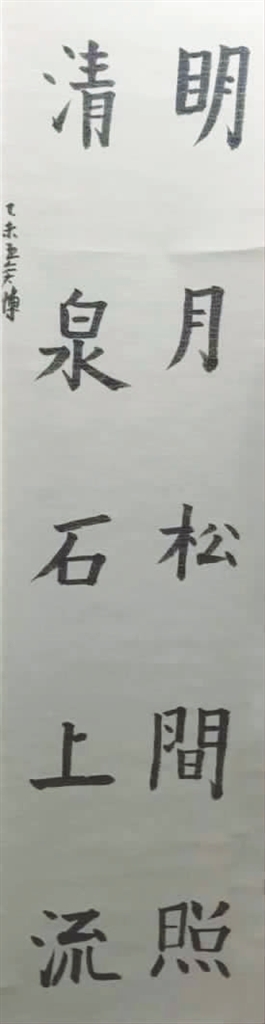 明月松間照
清泉石上流
乙未